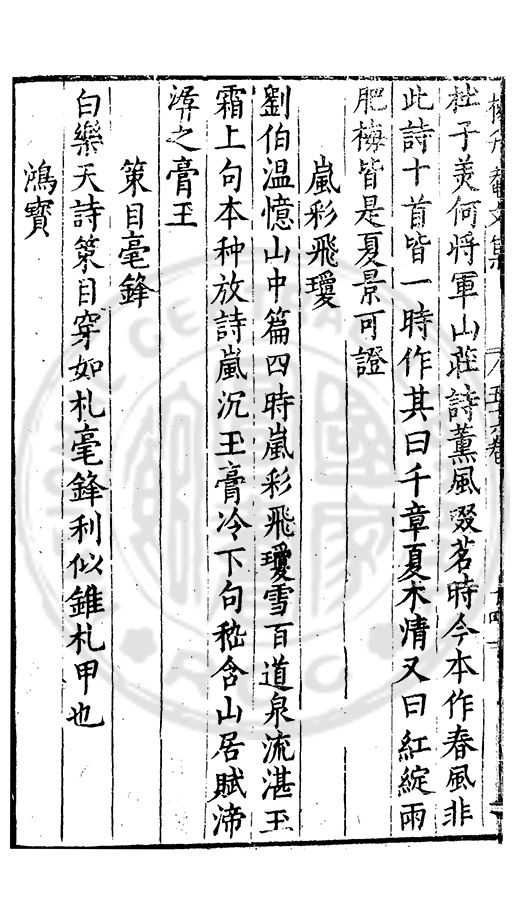 杜子美何將軍山莊詩薰風啜茗時今本作春風非
此詩十首皆一時作其曰千章夏木清又曰紅綻雨
肥梅皆是夏景可證
嵐彩飛瓊
劉伯溫憶山中篇四時嵐彩飛瓊雪百道泉流湛玉
霜上句本种放詩嵐沉玉膏冷下句嵇含山居賦渧
滜之膏玉
策目毫鋒
白樂天詩策目穿如札毫鋒利似錐札甲也
鴻寳